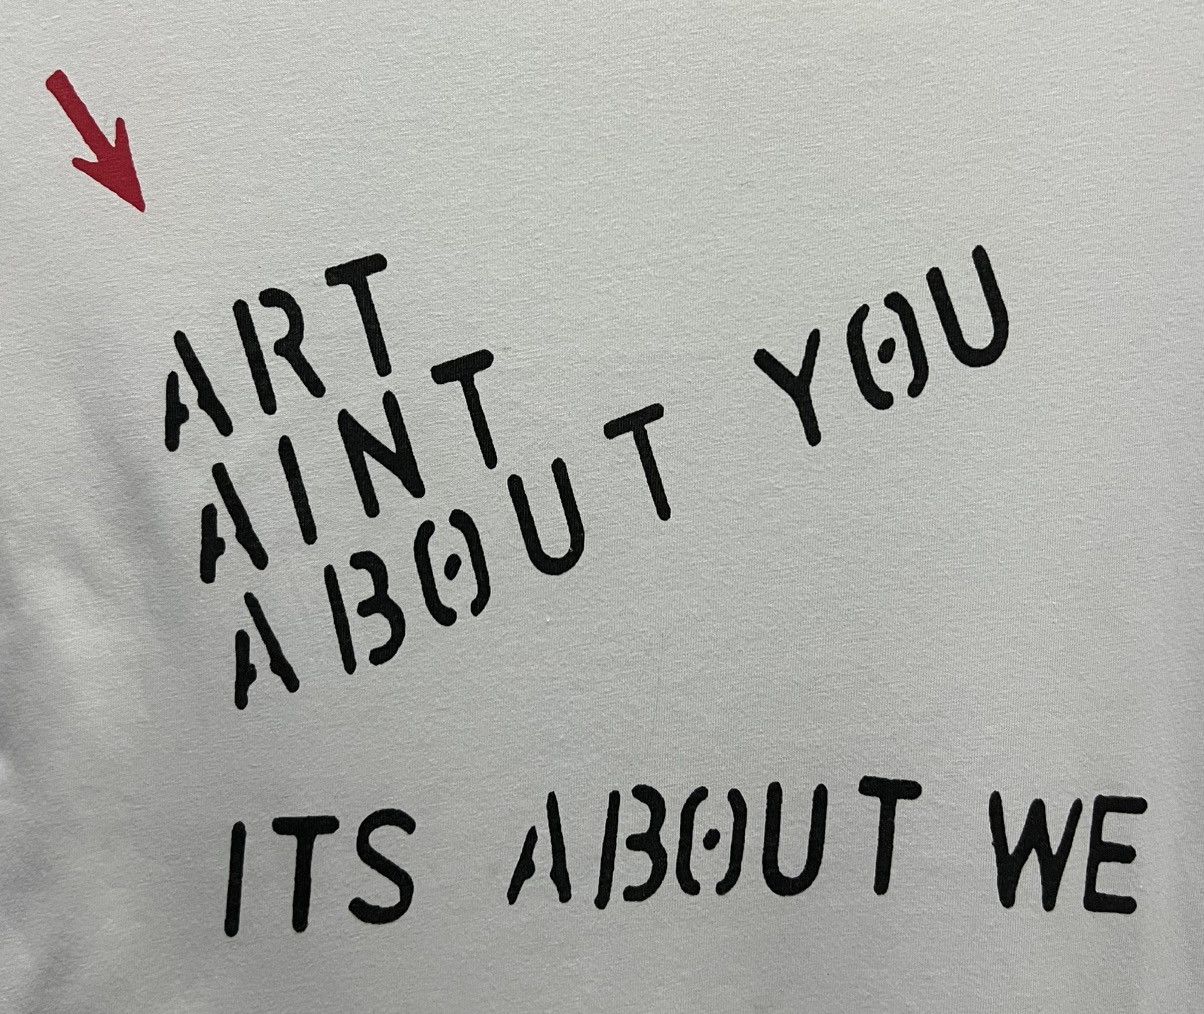 ART
AINT
ABOUT YOU
ITS ABOUT WE